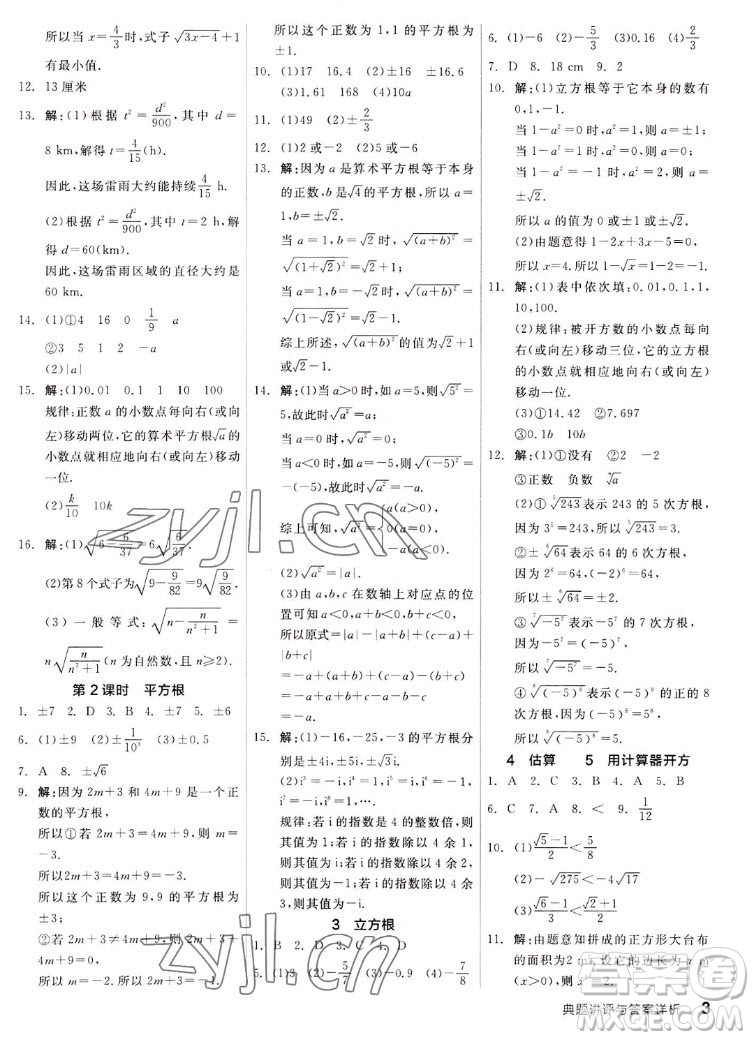 所以当 x=4/3 时,式子 √(3x-4)+1
有最小值.
12. 13 厘米
13. 解:(1)根据 t²=d³/900,其中 d=
8 km,解得 t=4/15(h).
因此,这场雷雨大约能持续 4/15 h.
(2)根据 t²=d³/900,其中 t=2 h,解得
d=60(km).
因此,这场雷雨区域的直径大约是
60 km.
14. (1)①4 16 0 1/9 a
②3 5 1 2 -a
(2)|a|
15. 解:(1)0.01 0.1 1 10 100
规律:正数 a 的小数点每向右(或向
左)移动两位,它的算术平方根√a 的
小数点就相应地向右(或向左)移动
一位.
(2)k/10 10k
16. 解:(1)√(6-6/37)=6√(6/37)
(2)第 8 个式子为√(9-9/82)=9√(9/82).
(3)一般等式:√(n-n/(n²+1))=
n√(n/(n²+1))(n 为自然数,且 n≥2).
第 2 课时 平方根
1. ±7 2. D 3. B 4. ±7 5. ±6
6. (1)±9 (2)±1/10³
7. A 8. ±√6
9. 解:因为 2m+3 和 4m+9 是一个正
数的平方根,
所以①若 2m+3=4m+9,则 m=
-3.
所以 2m+3=-3,4m+9=-3.
所以这个正数为 9,9 的平方根为
±3;
②若 2m+3≠4m+9,则 2m+3+
4m+9=0.
所以 m=-2.
所以 2m+3=-1,4m+9=1.
所以这个正数为 1,1 的平方根为
±1.
10. (1)17 16.4 (2)±16 ±16.6
(3)1.61 168 (4)10a
11. (1)49 (2)±2/3
12. (1)2 或-2 (2)5 或-6
13. 解:因为 a 是算术平方根等于本身
的正数,b 是√4的平方根,所以 a=
1,b=±√2.
当 a=1,b=√2时,√(a+b)²=
√(1+√2)²=√2+1;
当 a=1,b=-√2时,√(a+b)²=
√(1-√2)²=√2-1.
综上所述,√(a+b)²的值为√2+1 或
√2-1.
14. 解:(1)当 a>0 时,如 a=5,则√5²=
5,故此时√a²=a;
当 a=0 时,√a²=0;
当 a<0 时,如 a=-5,则√(-5)²=
-(-5),故此时√a²=-a.
综上可知,√a²={a(a>0),
0(a=0),
-a(a<0).
(2)√a²=|a|.
(3)由 a,b,c 在数轴上对应点的位
置可知 a<0,a+b<0,c-a>0,b+c<0,
所以原式=|a|-|a+b|+|c-a|+
|b+c|
=-a+a+b+c-a-b-c
=-a.
15. 解:(1)-16,-25,-3 的平方根分
别是±4i,±5i,±√3i.
(2)i³=-i,i⁴=1,i⁵=i,i⁶=-1,
i⁷=-i,i⁸=1.
规律:若 i 的指数是 4 的整数倍,
则其值为 1;若 i 的指数除以 4 余 1,
则其值为 i;若 i 的指数除以 4 余 2,
则其值为-1;若 i 的指数除以 4 余
3,则其值为-i.
3 立方根
1. B 2. D 3. C 4. D
5. (1)3 (2)-5/7 (3)-0.9 (4)-7/8
6. (1)-6 (2)5/3 (3)0.16 (4)2/3
7. D 8. 18 cm 9. 2
10. 解:(1)立方根等于它本身的数有
0,1,-1.
当 1-a²=0 时,a²=1,则 a=±1;
当 1-a²=1 时,a²=0,则 a=0;
当 1-a²=-1 时,a²=2,则 a=
±√2.
所以 a 的值为 0 或±1 或±√2.
(2)由题意得 1-2x+3x-5=0,
所以 x=4.所以 1-√x=1-√4=-1.
11. 解:(1)表中依次填:0.01,0.1,1,
10,100.
(2)规律:被开方数的小数点每向
右(或向左)移动三位,它的立方根
的小数点就相应地向右(或向左)
移动一位.
(3)①14.42 ②7.697
③0.1b 10b
12. 解:(1)①没有 ②2 -2
③正数 负数 ⁿ√a
(2)①⁵√243表示 243 的 5 次方根,
因为 3⁵=243,所以⁵√243=3.
②±⁶√64表示 64 的 6 次方根,
因为 2⁶=64,(-2)⁶=64,
所以±⁶√64=±2.
③⁷√-5⁷表示-5⁷的 7 次方根,
因为(-5)⁷=-5⁷,
所以⁷√-5⁷=-5.
④⁸√(-5)⁸表示(-5)⁸的正的 8
次方根,
因为(-5)⁸=5⁸,
所以⁸√(-5)⁸=5.
4 估算 5 用计算器开方
1. A 2. B 3. D 4. A 5. A
6. C 7. A 8. < 9. 1/12
10. (1)(√5-1)/2<5/8
(2)-√275<-4√17
(3)(√3+1)/2<(√2+1)/2
11. 解:由题意知拼成的正方形大台布
的面积为 2 m²,设它的边长为 x m
(x>0),则 x²=2,
典题讲评与答案详析 3
zyjl.cn
zyjl.cn